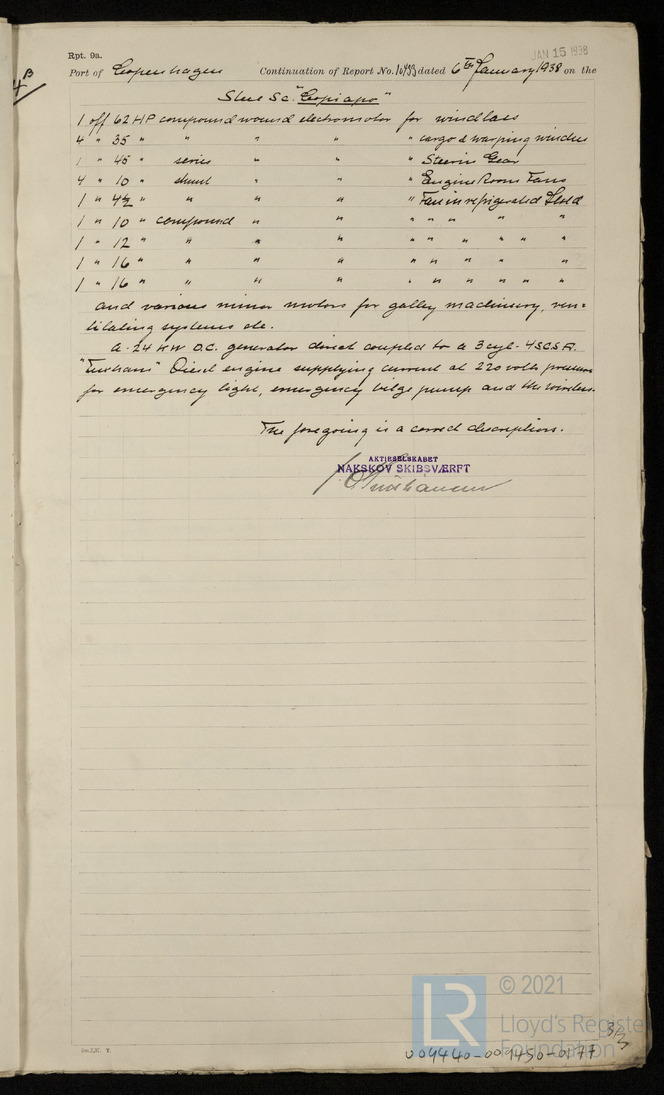 Rpt. 9a.
JAN 15 1938
Port of Copenhagen Continuation of Report No. 10493 dated 6th January 1938 on the
4B
Steel Sc. "Copiapo"
1 off 62 HP compound wound electromotor for windlass
4 " 35 " " " " " cargo & warping winches
1 " 45 " series " " " Steerin Gear
4 " 10 " shunt " " " Engine Room Fans
1 " 4½ " " " " " Fan in refrigerated Hold
1 " 10 " compound " " " " " " "
1 " 12 " " " " " " " " " "
1 " 16 " " " " " " " " "
1 " 16 " " " " " " " " " "
and various minor motors for galley machinery, ven=
tilating systems etc.
A 24 KW D.C. generator direct coupled to a 3 cyl. 4SCSA.
"Tuxham" Diesel engine supplying current at 220 volts pressure
for emergency light, emergency bilge pump and the wireless.
The foregoing is a correct description.
AKTIESELSKABET
NAKSKOV SKIBSVÆRFT
© 2021
LR
Lloyd's Register
Foundation
3/3
009440-009450-0177